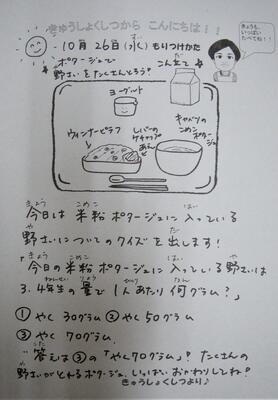 きゅうしょくしつから こんにちは!!
10月26日(水) もりつけかた
ポタージュで
野さいをたくさんとろう!
こん立て
きょうも、
いっぱい
たべてね!
ヨーグルト
ウィンナーピラフ
レバーの
ケチャップ
あえ
キャベツの
こめこ
ポタージュ
今日は 米粉 ポタージュに 入っている
野さいについてのクイズを出します!
「今日の米粉ポタージュに入っている野さいは
3.4年生の量で1人あたり何グラム?」
①やく 30グラム ②やく50グラム
③やく 70グラム
答えは③の「やく70グラム」! たくさんの
野さいがとれるポタージュ、いっぱいおかわりしてね!
きゅうしょくしつより♪